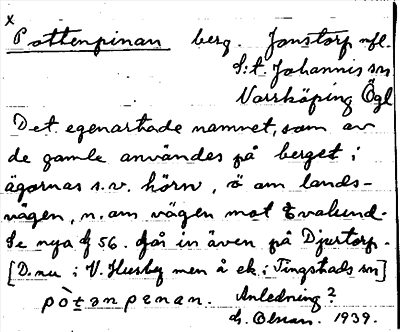 x
Pottenpinan berg. Jonstorp nfl.
S:t Johannis sn
Norrköping Ögl
Det egenartade namnet, som av
de gamle användes på berget i
ägornas s.v. hörn, ö om lands-
vägen, n. om vägen mot Evalund.
Se nya § 56. går in även på Djurtorp.
[D. nu i V. Husby men å ek. i Tingstads sn]
pòtənpɛnan. Anledning?
G. Olson. 1939.